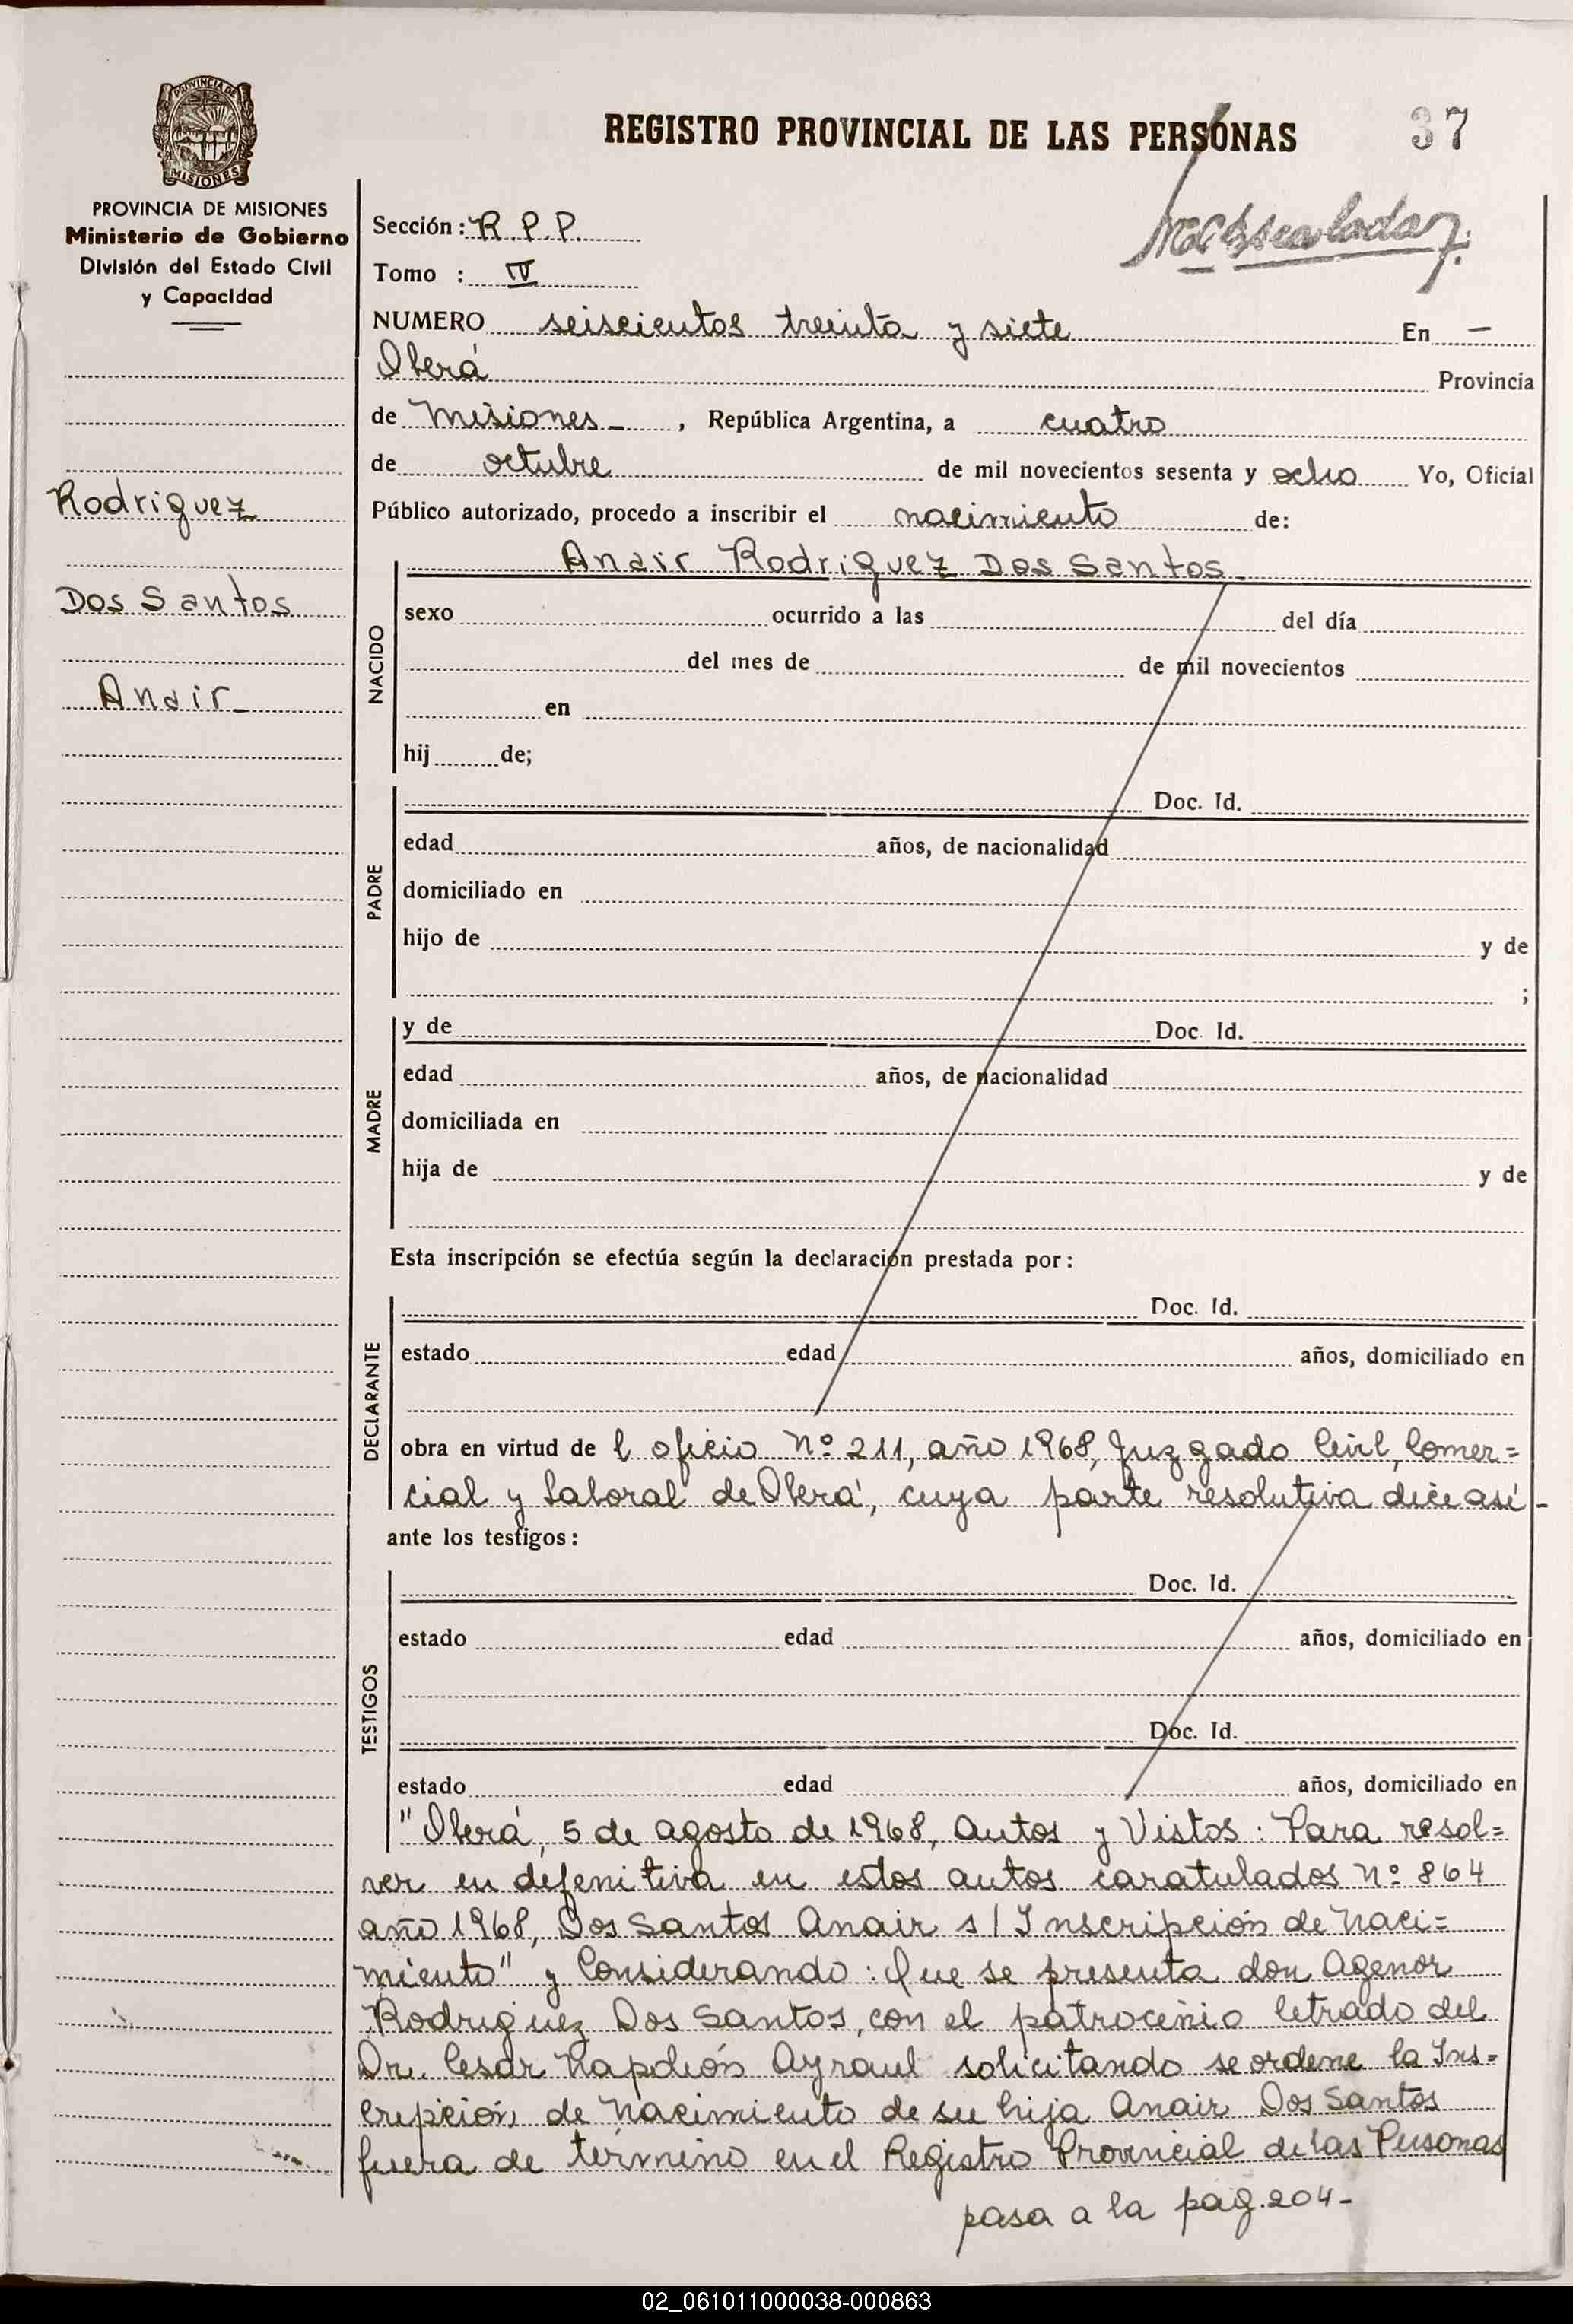 PROVINCIA DE MISIONES
REGISTRO PROVINCIAL DE LAS PERSONAS
37
PROVINCIA DE MISIONES
Ministerio de Gobierno
División del Estado Civil
y Capacidad
Sección: R.P.P.
Tomo : IV
NUMERO seiscientos treinta y siete En —
Oberá Provincia
de Misiones - , República Argentina, a cuatro
de octubre de mil novecientos sesenta y ocho Yo, Oficial
Público autorizado, procedo a inscribir el nacimiento de:
Rodriguez
Dos Santos
Anair -
Anair Rodriguez Dos Santos
NACIDO
sexo ocurrido a las del día
del mes de de mil novecientos
en
hij de;
PADRE
Doc. Id.
edad años, de nacionalidad
domiciliado en
hijo de y de
;
MADRE
y de Doc. Id.
edad años, de nacionalidad
domiciliada en
hija de y de
Esta inscripción se efectúa según la declaración prestada por:
DECLARANTE
Doc. Id.
estado edad años, domiciliado en
obra en virtud de l oficio Nº 211, año 1968, Juzgado Civil, Comer=
cial y Laboral de Oberá, cuya parte resolutiva dice así -
ante los testigos:
TESTIGOS
Doc. Id.
estado edad años, domiciliado en
Doc. Id.
estado edad años, domiciliado en
"Oberá, 5 de agosto de 1968, Autos y Vistos: Para resol=
ver en defenitiva en estos autos caratulados Nº 864
año 1968, Dos Santos Anair s/ Inscripción de Naci=
miento" y Considerando: Que se presenta don Agenor
Rodriguez Dos Santos, con el patrocinio letrado del
Dr. Cesar Napoleón Ayrault solicitando se ordene la Ins=
cripción de Nacimiento de su hija Anair Dos Santos
fuera de término en el Registro Provincial de las Personas
pasa a la pag. 204-
02_061011000038-000863